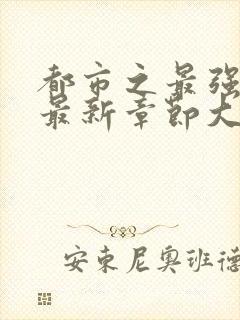 都市之最强
最新章节大
安东尼奥班德